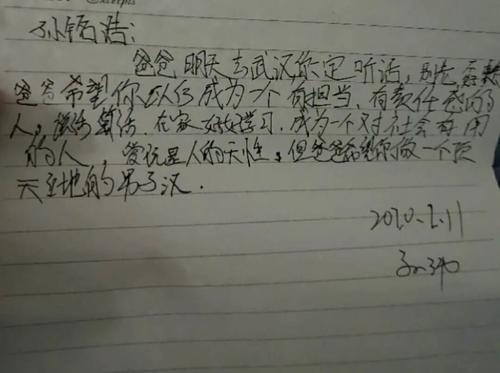 孙铭浩:
爸爸明天去武汉你定听话,别
爸爸希望你以后成为一个有担当,有责任感的
人,说话算话.在家好好学习,成为一个对社会有用
的人,爱玩是人的天性,但爸爸希望你做一个顶
天立地的男子汉.
2020.2.11